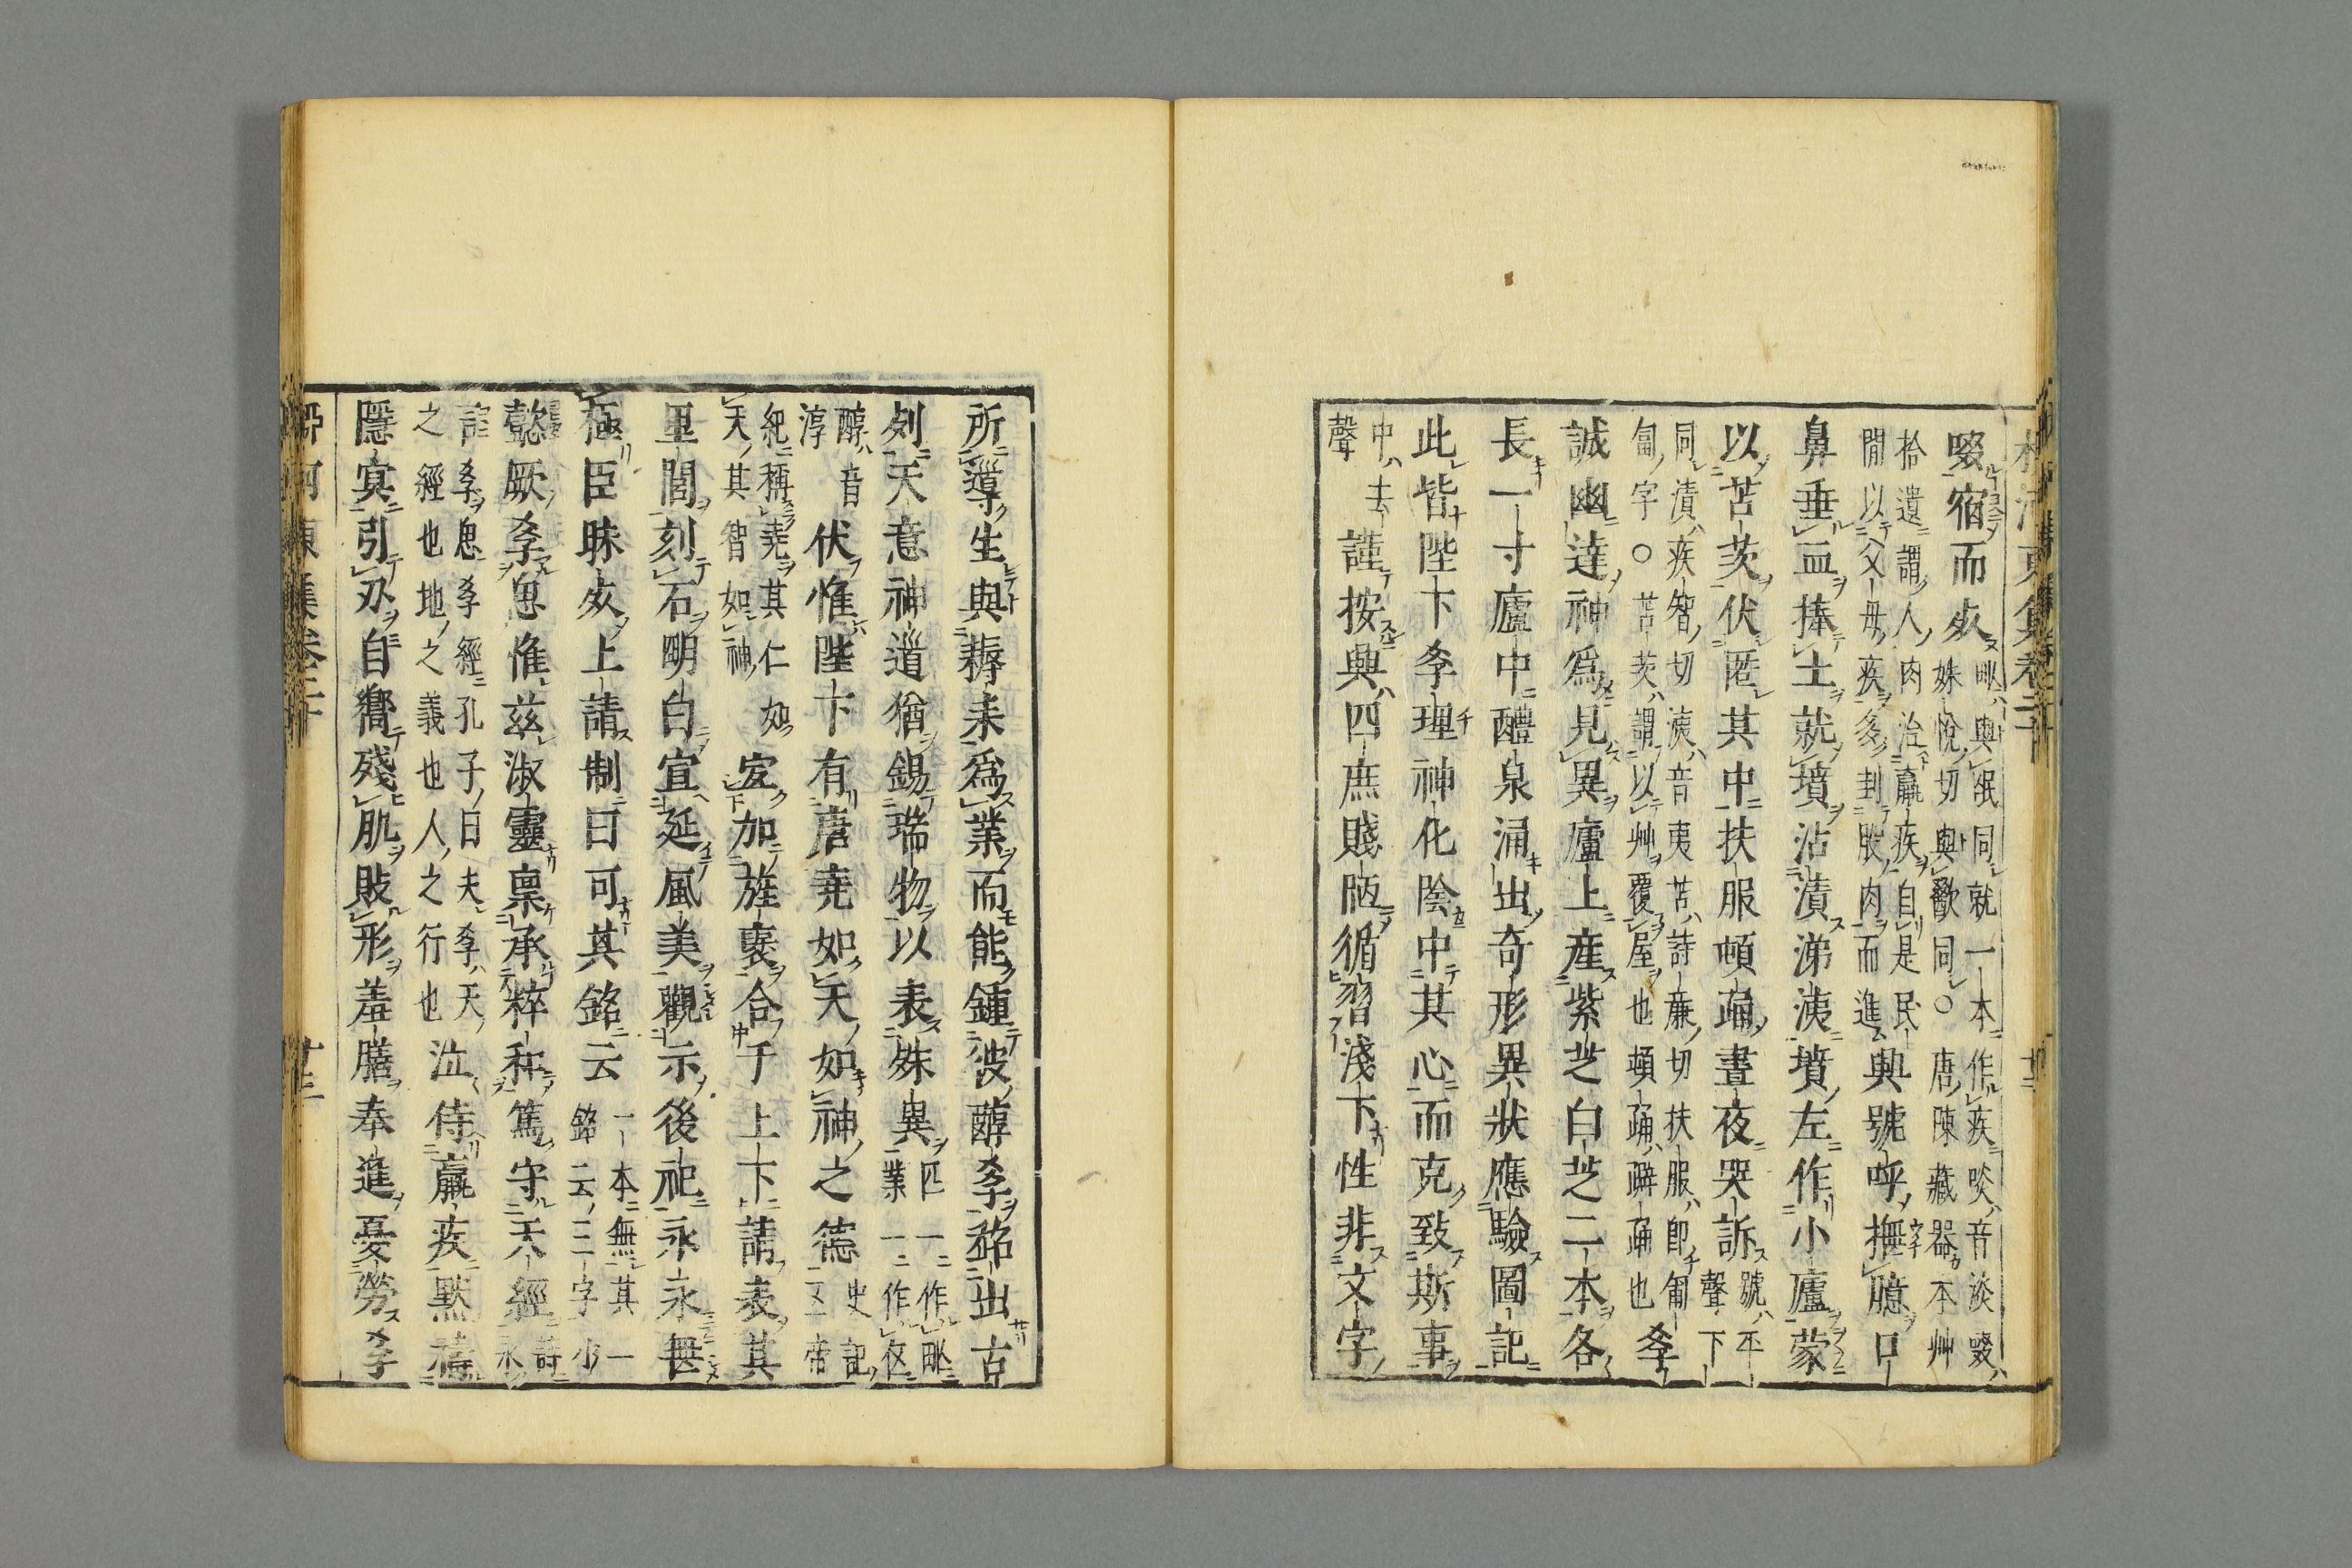 啜宿而死
甿與氓同就一本作疾啖音淡啜
姝悅切與歠同○唐陳藏器本艸
拾遺謂人肉治羸疾自是民
間以父母疾多刲股肉而進
興號呼撫臆口
鼻垂血捧土就墳沾漬涕洟墳左作小廬蒙
以苫茨伏匿其中扶服頓踊晝夜哭訴
號平
聲下
同漬疾智切洟音夷苫詩廉切扶服即匍
匐字○苫茨謂以艸覆屋也頓踊躃踊也
孝
誠幽達神爲見異廬上產紫芝白芝二本各
長一寸廬中醴泉涌出奇形異狀應驗圖記
此皆陛下孝理神化陰中其心而克致斯事
中去
聲
謹按興四庶賤陋循習淺下性非文字
所導生與耨耒爲業而能鍾彼醇孝超出古
列天意神道猶錫瑞物以表殊異
匹一作甿
業一作夜
醇音
淳
伏惟陛下有唐堯如天如神之德
史記
帝
紀稱堯其仁如
天其智如神
宜加旌褒合于上下請表其
里閭刻石明白宣延風美觀示後祀永永無
極臣昧死上請制曰可其銘云
一本無其一
銘云二字少
懿厥孝思惟兹淑靈稟承粹和篤守天經
詩
永
言孝思孝經孔子曰夫孝天
之經也地之義也人之行也
泣侍羸疾默禱
隱冥引刃自嚮殘肌敗形羞膳奉進憂勞孝
河東集卷二十